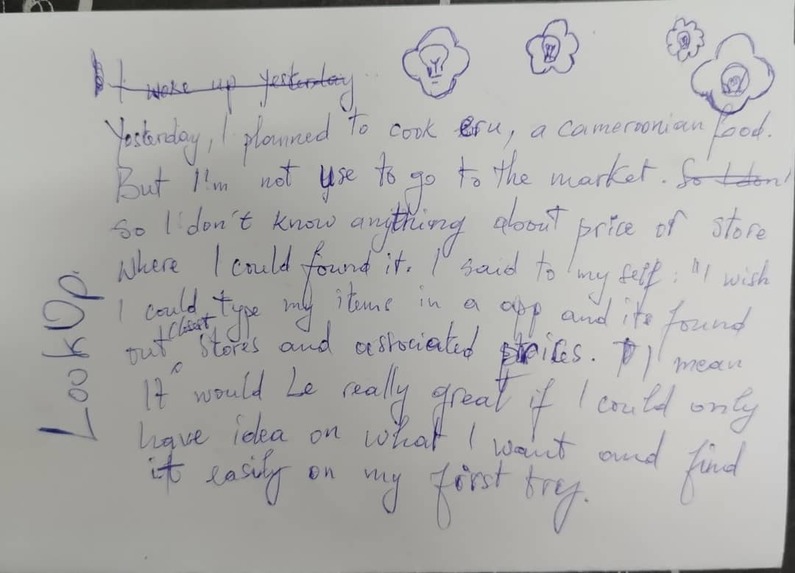 I woke up yesterday
Yesterday, I planned to cook eru, a cameroonian food.
But I'm not use to go to the market. So I don'
So I don't know anything about price of store
Where I could found it. I said to my self: "I wish
I could type my items in a app and its found
out closest stores and associated prices. I mean
It would be really great if I could only
have idea on what I want and find
it easily on my first try.
LookUp